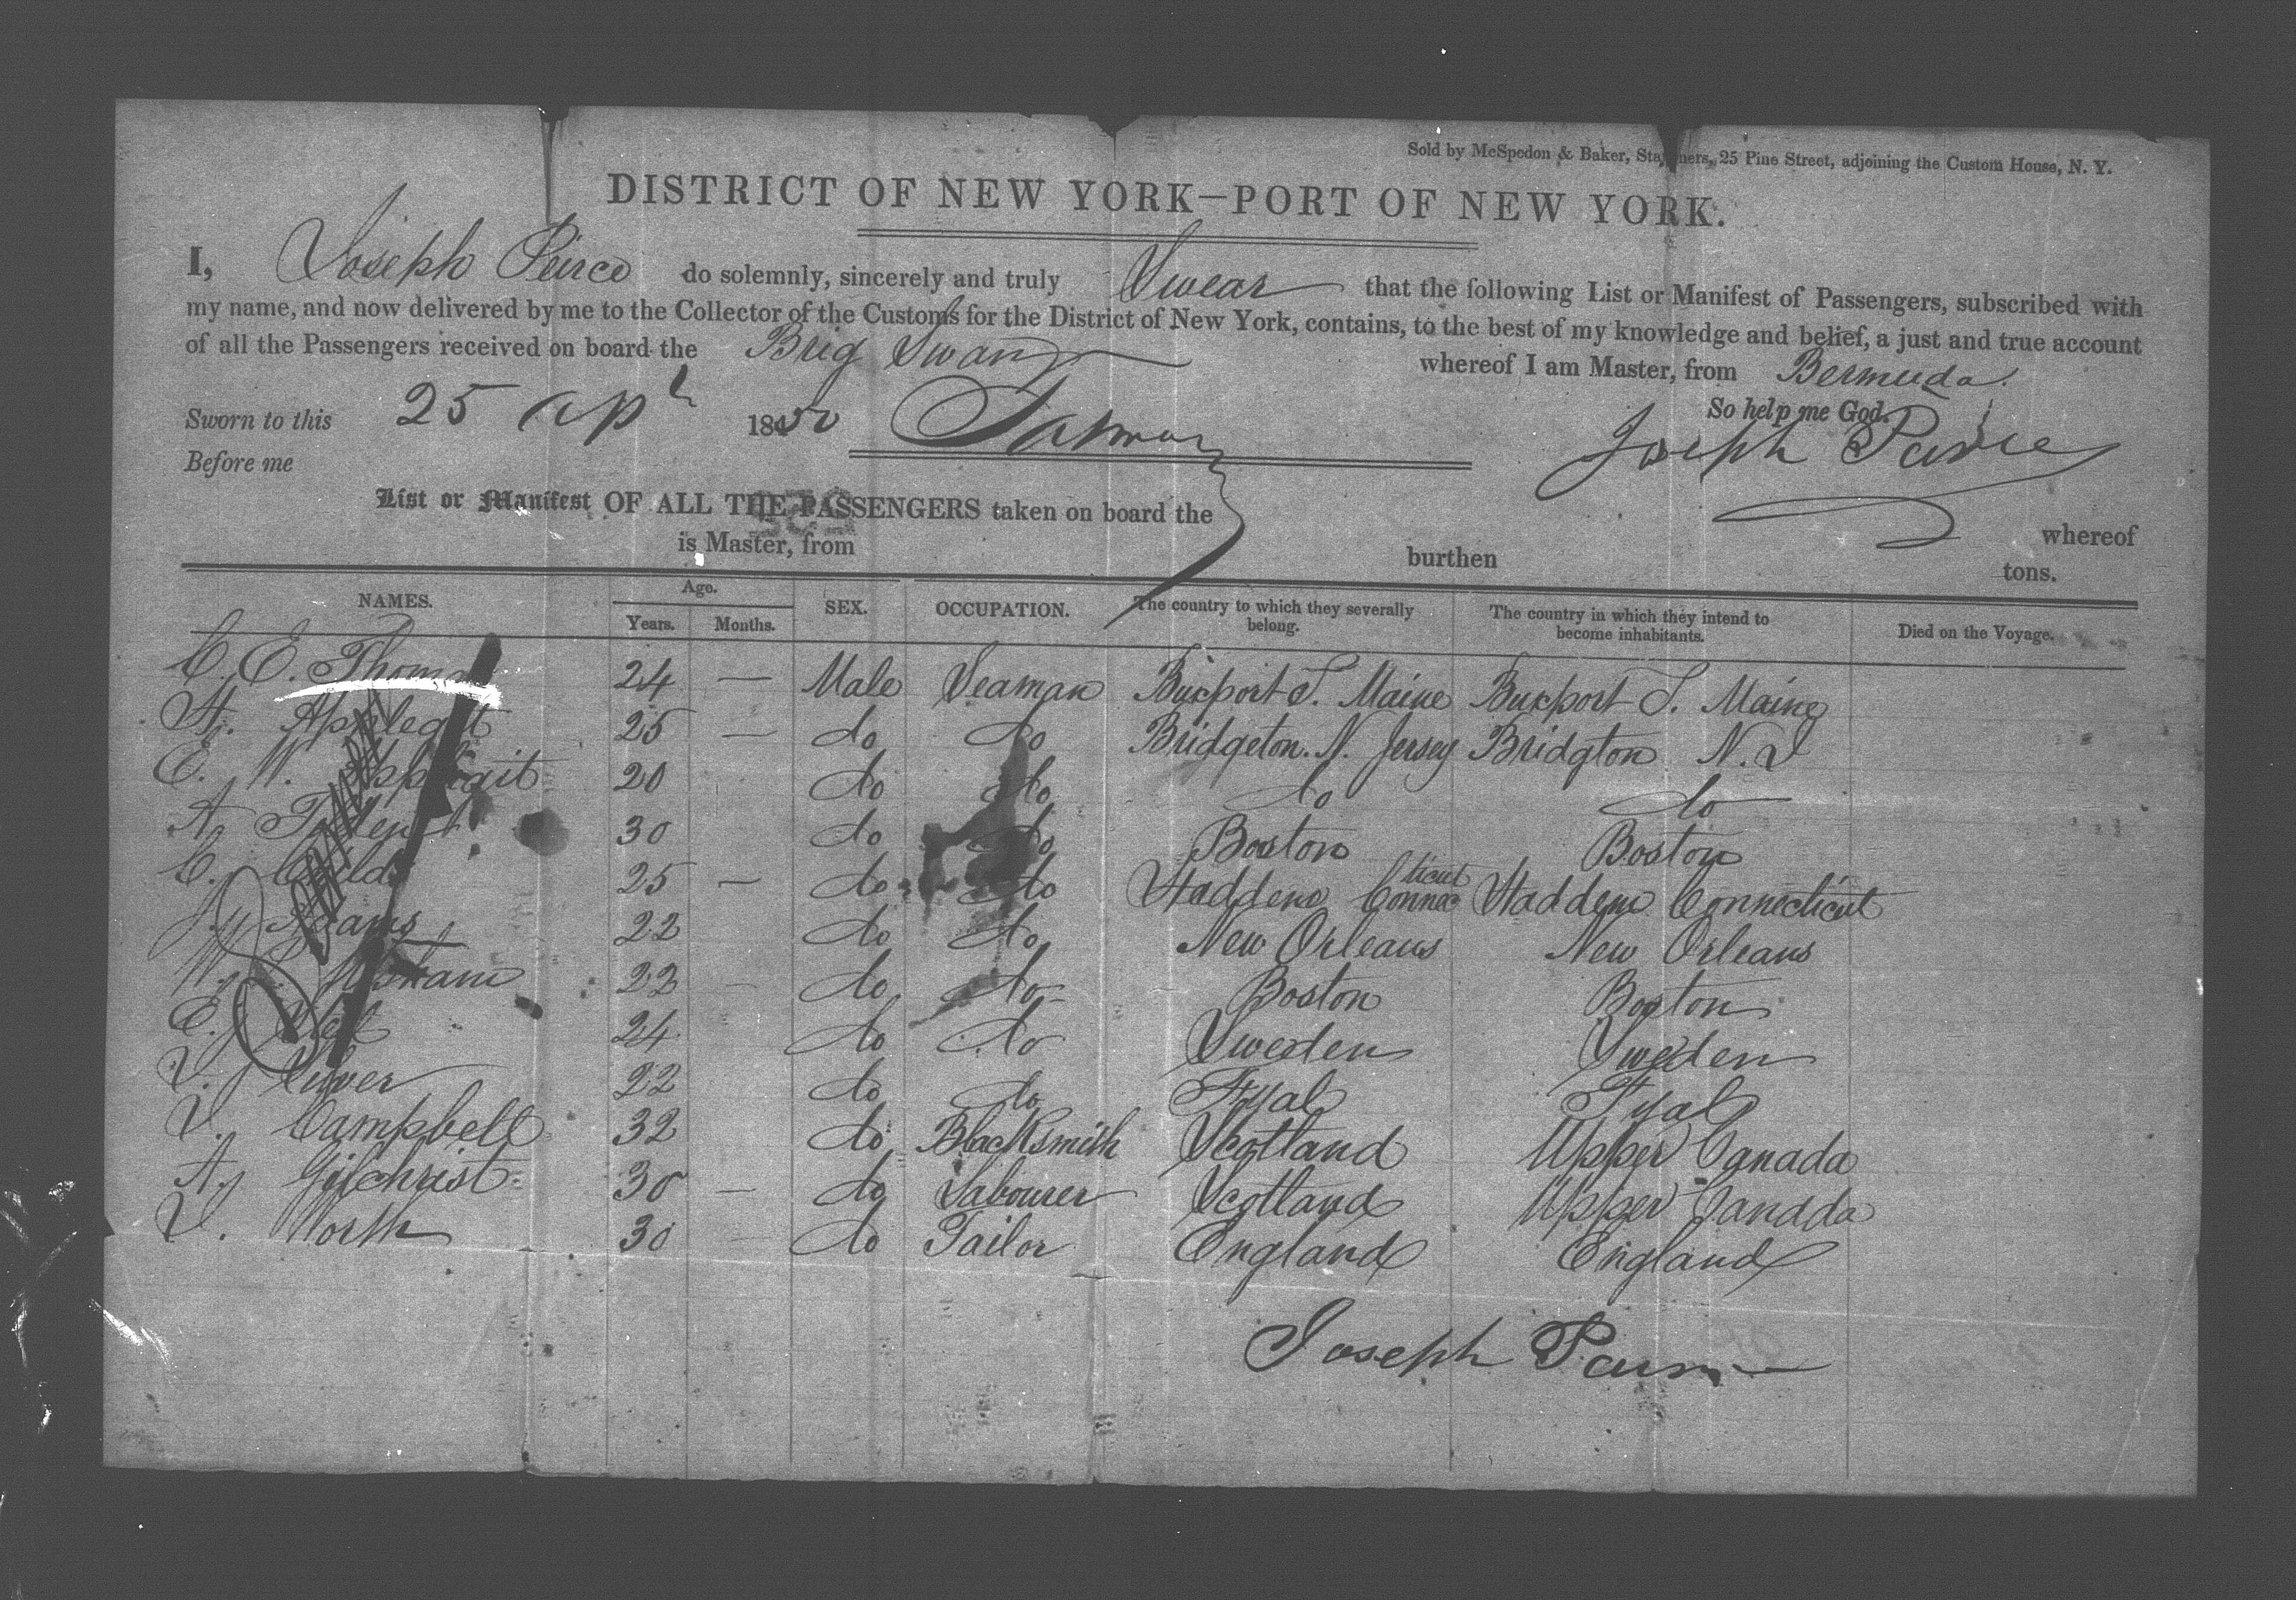 Sold by McSpedon & Baker, Stationers, 25 Pine Street, adjoining the Custom House, N. Y.
DISTRICT OF NEW YORK—PORT OF NEW YORK.
I, Joseph Peirce do solemnly, sincerely and truly Swear that the following List or Manifest of Passengers, subscribed with
my name, and now delivered by me to the Collector of the Customs for the District of New York, contains, to the best of my knowledge and belief, a just and true account
of all the Passengers received on board the Brig Swan whereof I am Master, from Bermuda.
So help me God.
Sworn to this 25 Apl 1850 Joseph
Before me
List or Manifest OF ALL THE PASSENGERS taken on board the whereof
is Master, from burthen tons.
NAMES. Age. Years. Months. SEX. OCCUPATION. The country to which they severally belong. The country in which they intend to become inhabitants. Died on the Voyage.
C. E. Thomas 24 — Male Seaman Buxport S. Maine Buxport S. Maine
A. Applegat 25 — do do Bridgeton. N. Jersey Bridgton N. J
E. W. 20 do do do do
A. 30 do do Boston Boston
C. Childs 25 — do do Haddem Connecticut Haddem Connecticut
J. Adams 22 do do New Orleans New Orleans
W. 22 — do do Boston Boston
E. 24 do do Sweden Sweden
22 do do Fyal Fyal
J. Campbell 32 do Blacksmith Scotland Upper Canada
A. Gilchrist 30 — do Labourer Scotland Upper Canadda
J. North 30 do Tailor England England
Joseph